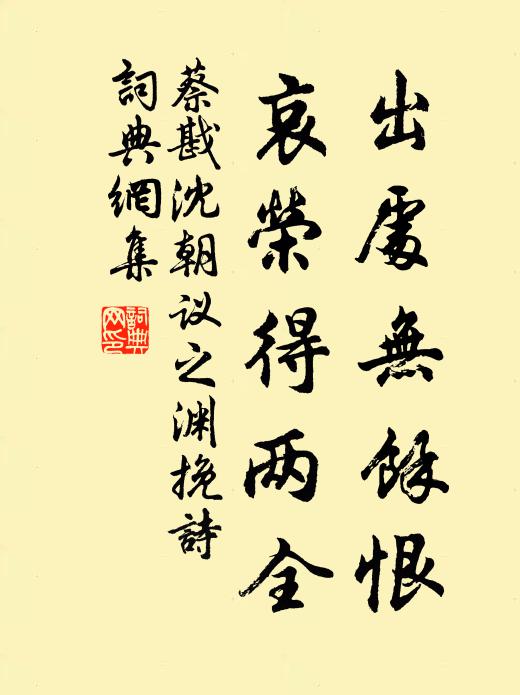 出處無餘恨
哀榮得两全
蔡戡沈朝议之渊挽詩
詞典網集
詞典
网印